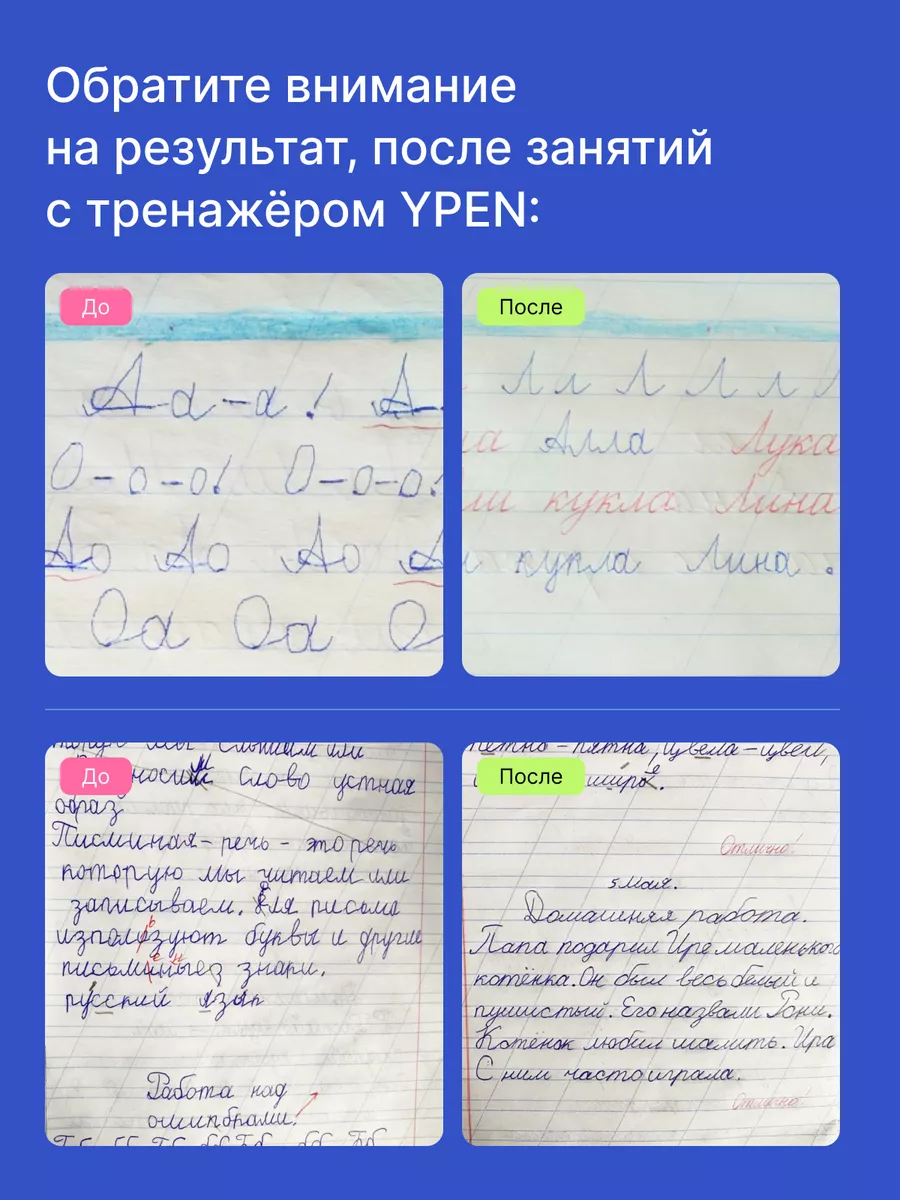 Обратите внимание
на результат, после занятий
с тренажёром YPEN:
До
А-а-а! А-
О-о-о! О-о-о!
Ао Ао Ао А
Оа Оа О
После
Л л Л Л л
а Алла Лука
ли кукла Лина
и кукла Лина.
До
мы слышим или
слово устная
образ
Писминая- речь - это речь
которую мы читаем или
записываем. Для писома
използуют буквы и другие
знаки.
русский язык
Работа над
ошибками.
После
пятно - пятна, цвела - цвет,
Отлично!
5 мая.
Домашняя работа.
Папа подарил Ире маленького
котёнка. Он был весь белый и
пушистый. Его назвали Рони.
Котёнок любил шалить. Ира
С ним часто играла.
Отлично